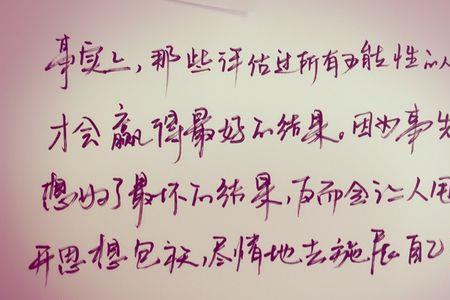 事实上，那些评估过所有可能性的人
才会赢得最好的结果。因为事先
想好了最坏的结果，反而会让人甩
开思想包袱，尽情地去施展自己